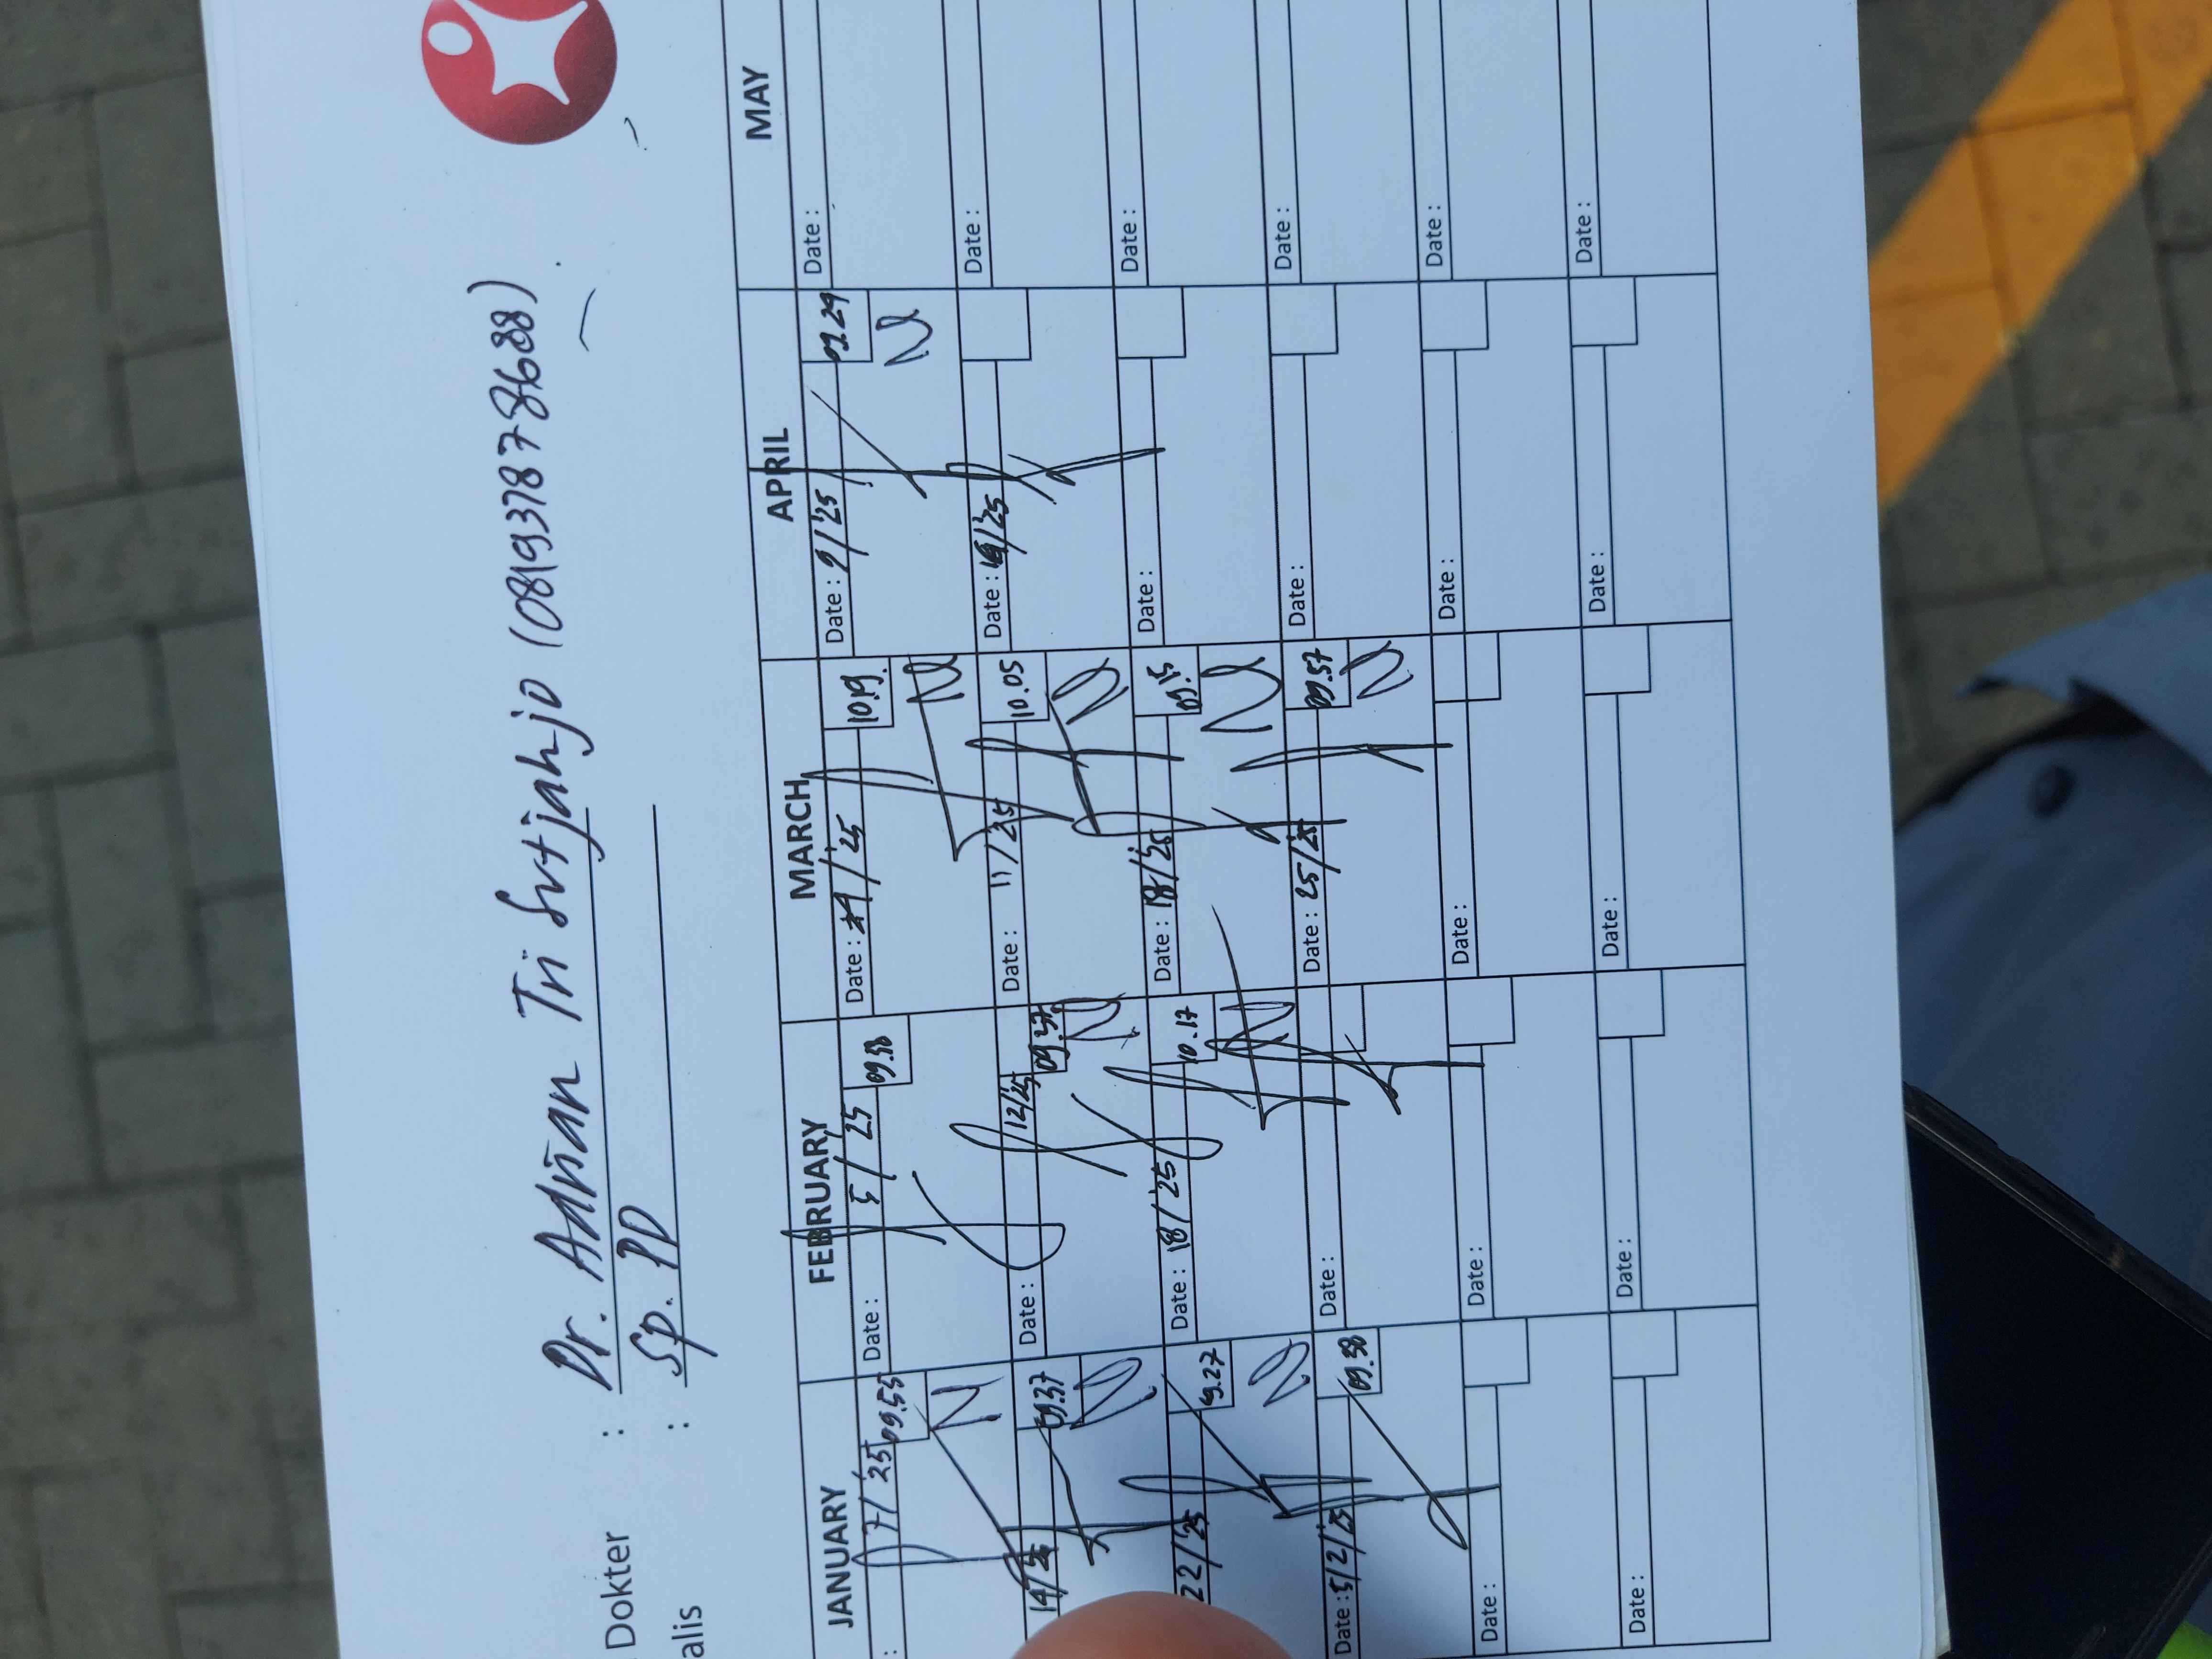 Dokter : Dr. Adrian Tri Sutjahjo (081937878688)
alis : Sp. PD
JANUARY FEBRUARY MARCH APRIL MAY
: 7/25 09.55 Date : 5/25 09.38 Date : 4/25 10.19. Date : 9/25 09.29 Date :
14/25 09.37 Date : 12/25 09.37 Date : 11/25 10.05 Date : 16/25 Date :
22/25 09.27 Date : 18/25 10.17 Date : 18/25 09.15 Date : Date :
Date : 5/2/25 09.38 Date : Date : 25/25 09.57 Date : Date :
Date : Date : Date : Date : Date :
Date : Date : Date : Date : Date :